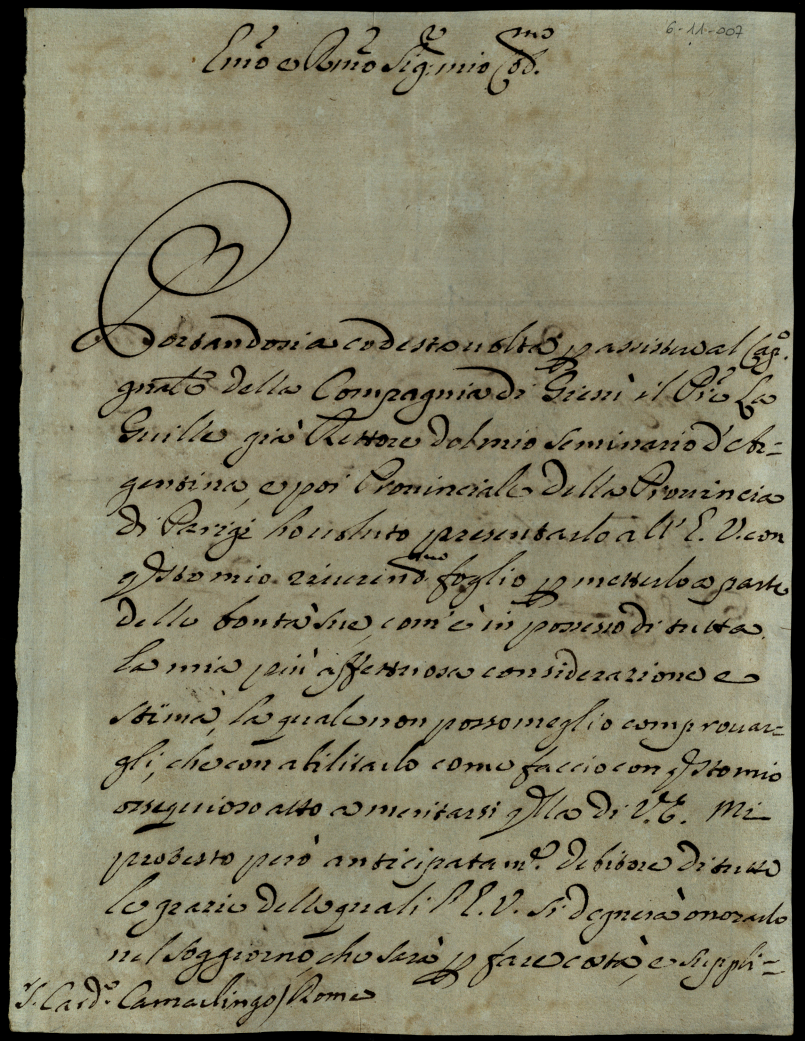 6-11-007
Emo e Rmo Sig.r mio Col.mo
Portandosi a codesta volta p assistere al Cap.o
gnale della Compagnia di Giesù il Pre La
Guille già Rettore del mio Seminario d'Ar=
gentina, e poi Provinciale della Provincia
di Parigi ho voluto presentarlo all' E. V. con
qsto mio riverend.mo foglio p metterlo a parte
delle bontà sue, com'è in possesso di tutta
la mia più affettuosa considerazione e
stima, la quale non posso meglio comprovar=
gli, che con abilitarlo come faccio con qsto mio
ossequioso atto a meritarsi qlla di V. E. Mi
protesto però anticipatam.e debitore di tutte
le grazie delle quali l'E. V. si degnerà onorarlo
nel soggiorno, che sarà p fare costà, e suppli=
S. Card.e Camarlingo / Roma